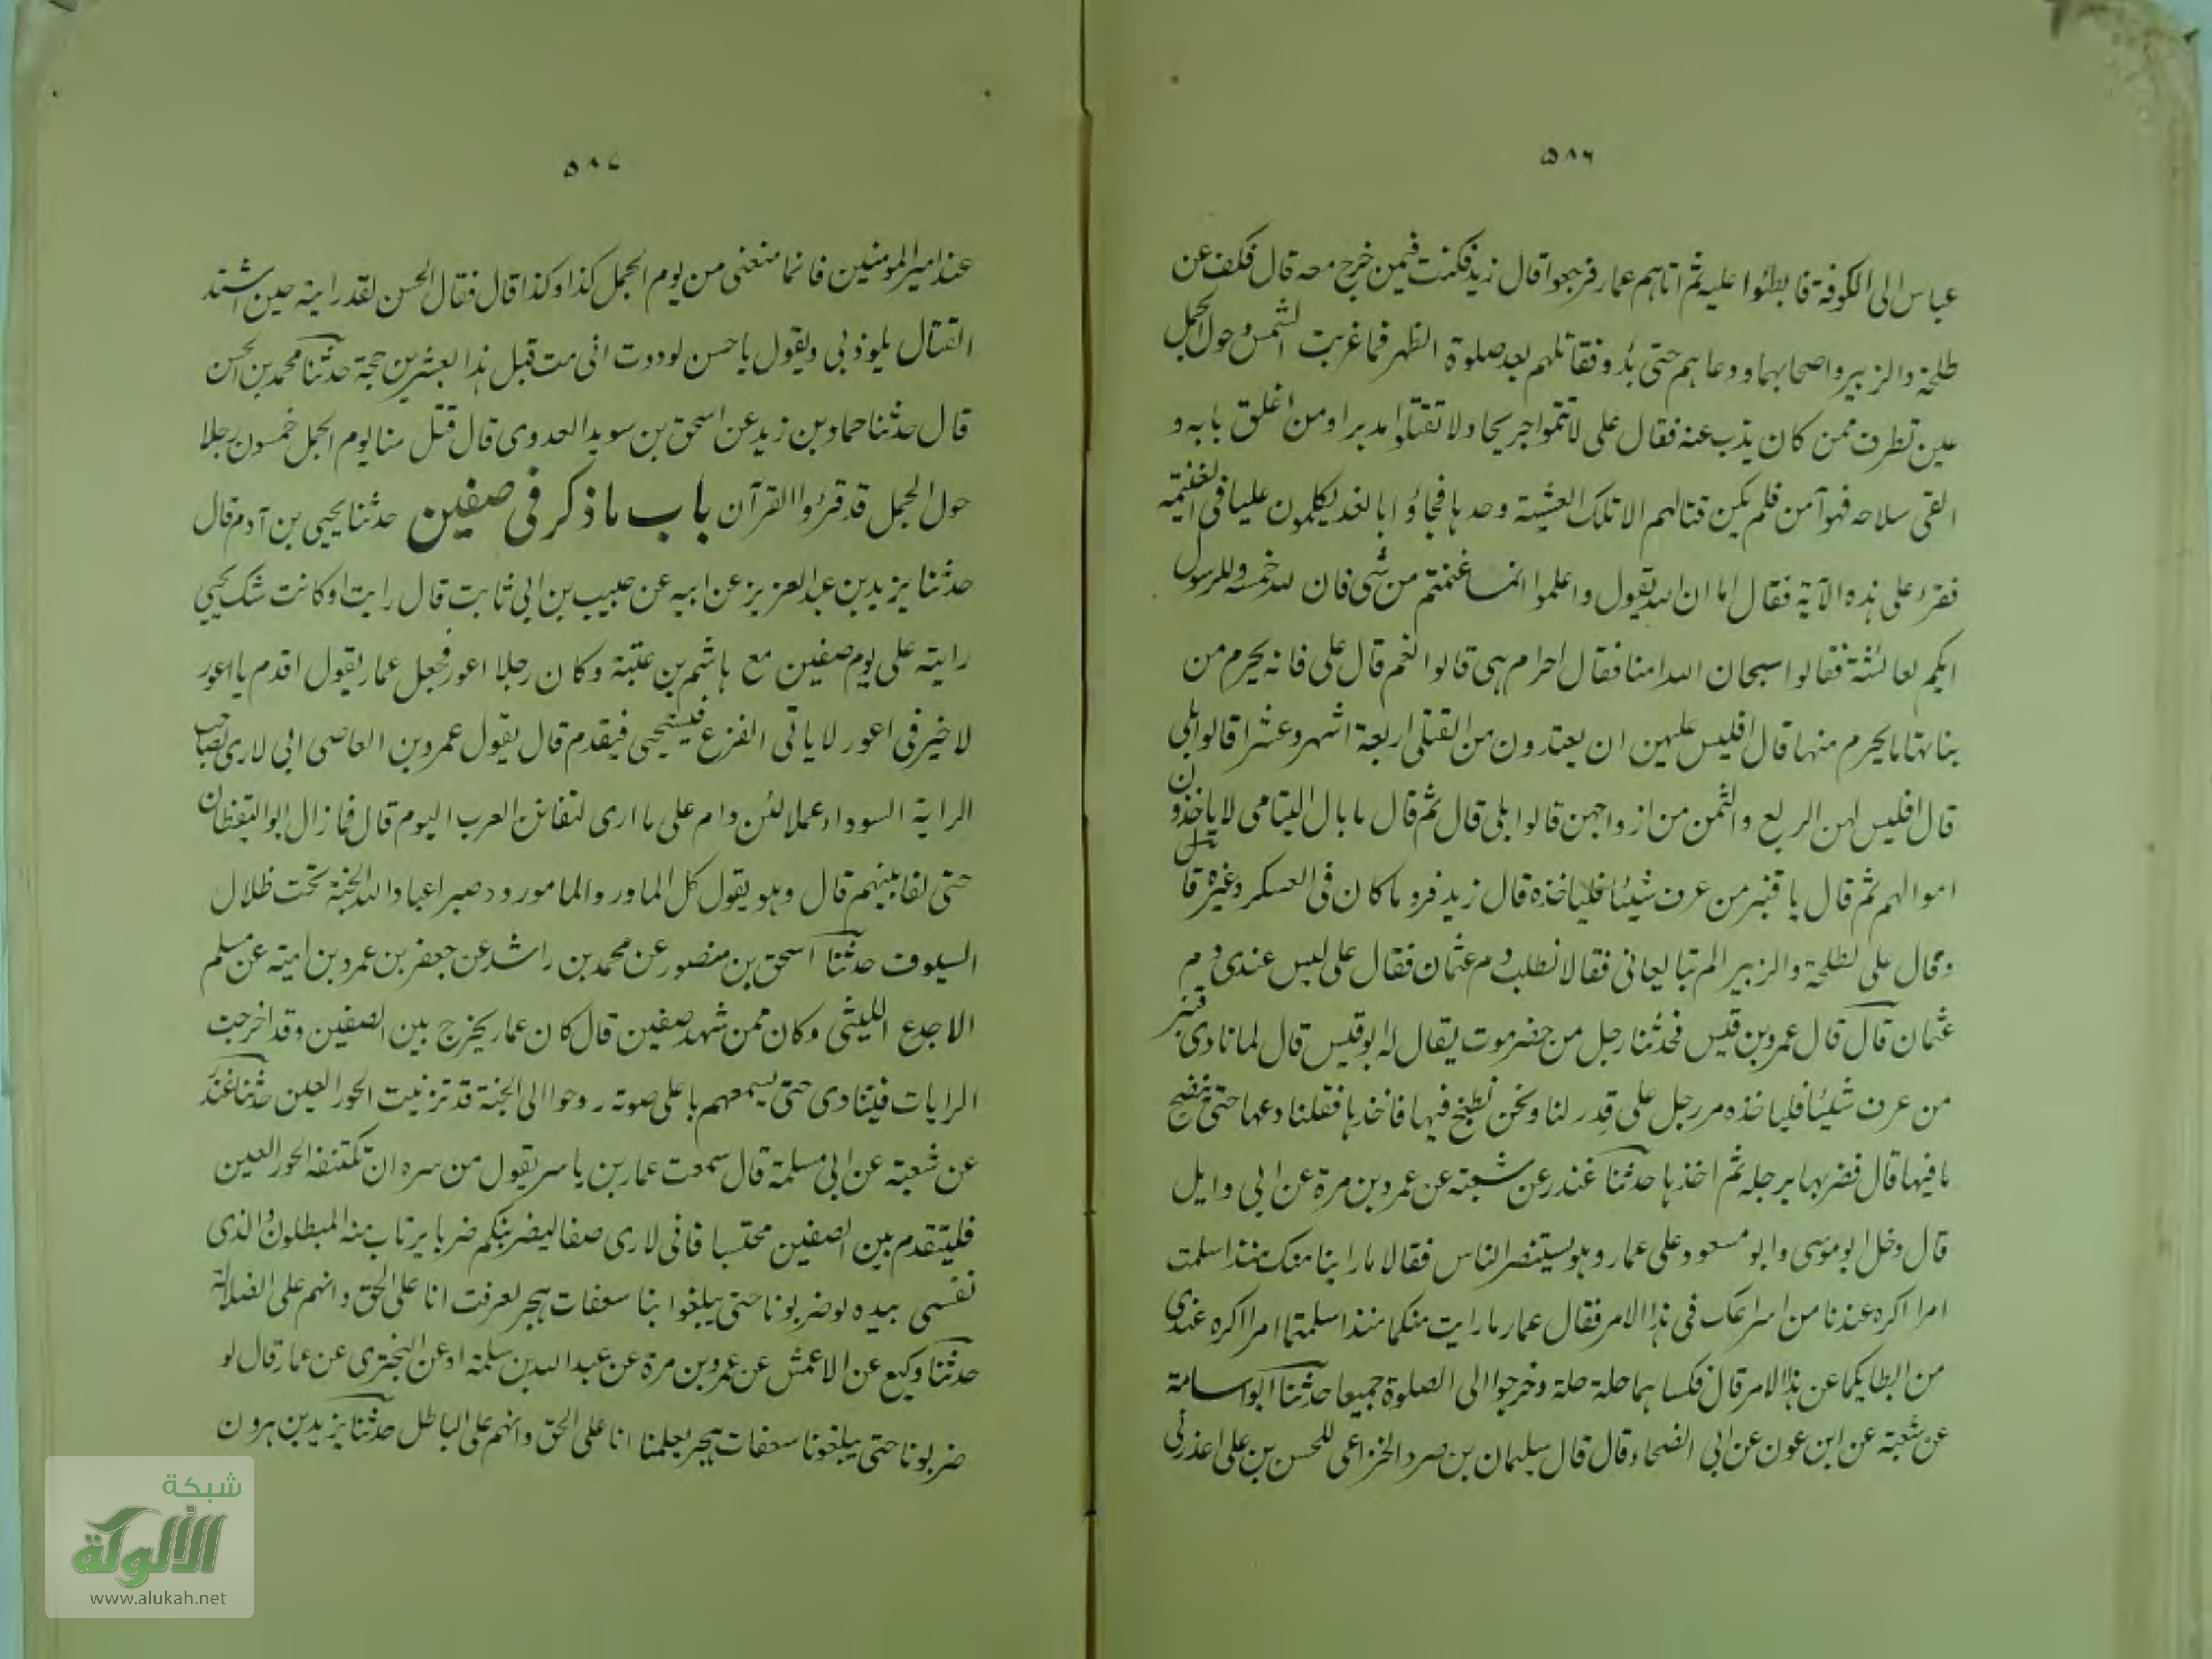 ٥٨٦
عباس الى الكوفة فابطئوا عليه ثم اتاهم عمار فرجعوا قال زيد فكنت فيمن خرج معه قال فكف عن
طلحة والزبير واصحابهما ودعاهم حتى بدؤ وفقاتلهم بعد صلوة الظهر فما غربت الشمس وحول الجمل
عين تطرف ممن كان يذب عنه فقال على لا تتموا جريحا ولا تقتلوا مدبرا ومن اغلق بابه و
القى سلاحه فهو آمن فلم يكن قتالهم الا تلك العشية وحدها فجاؤا بالغد يكلمون عليا فى الغنيمة
فقرء على هذه الآية فقال اما ان الله يقول واعلموا انما غنمتم من شى فان لله خمسه وللرسول
ايكم لعائشة فقالوا سبحان الله امنا فقال احرام هى قالوا نعم قال على فانه يحرم من
بناتها ما يحرم منها قال افليس عليهن ان يعتدون من القتلى اربعة اشهر وعشرا قالوا بلى
قال افليس لهن الربع والثمن من ازواجهن قالوا بلى قال ثم قال ما بال اليتامى لا ياخذون
اموالهم ثم قال يا قنبر من عرف شيئا فلياخذه قال زيد فرد ما كان فى العسكر وغيره قال
وقال على لطلحة والزبير الم تبايعانى فقالا نطلب دم عثمان فقال على ليس عندى دم
عثمان قال قال عمرو بن قيس فحدثنا رجل من حضرموت يقال له ابو قيس قال لما نادى قنبر
من عرف شيئا فلياخذه مر رجل على قدر لنا ونحن نطبخ فيها فاخذها فقلنا دعها حتى ينضج
ما فيها قال فضربها برجله ثم اخذها حدثنا غندر عن شعبة عن عمرو بن مرة عن ابى وايل
قال دخل ابو موسى وابو مسعود على عمار وهو يستنصر الناس فقالا ما راينا منك منذ اسلمت
امرا اكره عندنا من اسراعك فى هذا الامر فقال عمار ما رايت منكما منذ اسلمتما امرا اكره عندى
من ابطايكما عن هذا الامر قال فكساهما حلة حلة وخرجوا الى الصلوة جميعا حدثنا ابو اسامة
عن شعبة عن ابن عون عن ابى الضحاء قال قال سليمان بن صرد الخزاعى للحسن بن على اعذرنى
٥٨٧
عند امير المومنين فانما منعنى من يوم الجمل كذا وكذا قال فقال الحسن لقد رايته حين اشتد
القتال يلوذ بى ويقول يا حسن لوددت انى مت قبل هذا بعشرين حجة حدثنا محمد بن الحسن
قال حدثنا حماد بن زيد عن اسحق بن سويد العدوى قال قتل منا يوم الجمل خمسون رجلا
حول الجمل قد قرؤا القرآن باب ما ذكر فى صفين حدثنا يحيى بن آدم قال
حدثنا يزيد بن عبد العزيز عن ابيه عن حبيب بن ابى ثابت قال رايت او كانت شك يحيى
راية على يوم صفين مع هاشم بن عتبة وكان رجلا اعور فجعل عمار يقول اقدم يا اعور
لا خير فى اعور لا ياتى الفزع فيستحيى فيقدم قال يقول عمرو بن العاصى انى لارى لصاحب
الراية السوداء عملا لئن دام على ما ارى لتفانن العرب اليوم قال فما زال ابو اليقظان
حتى لفا بينهم قال وهو يقول كل الما ورد والما مورود صبرا عباد الله الجنة تحت ظلال
السيوف حدثنا اسحق بن منصور عن محمد بن راشد عن جعفر بن عمرو بن امية عن مسلم
الاجدع الليثى وكان ممن شهد صفين قال كان عمار يخرج بين الصفين وقد اخرجت
الرايات فينادى حتى يسمعهم باعلى صوته روحوا الى الجنة قد تزينت الحور العين حدثنا غندر
عن شعبة عن ابى مسلمة قال سمعت عمار بن ياسر يقول من سره ان تكتنفه الحور العين
فليتقدم بين الصفين محتسبا فانى لارى صفا ليضربنكم ضربا يرتاب منه المبطلون والذى
نفسى بيده لو ضربونا حتى يبلغوا بنا سعفات هجر لعرفت انا على الحق وانهم على الضلالة
حدثنا وكيع عن الاعمش عن عمرو بن مرة عن عبد الله بن سلمة او عن البخترى عن عمار قال لو
ضربونا حتى يبلغونا سعفات هجر لعلمنا انا على الحق وانهم على الباطل حدثنا يزيد بن هرون
شبكة
الألوكة
www.alukah.net